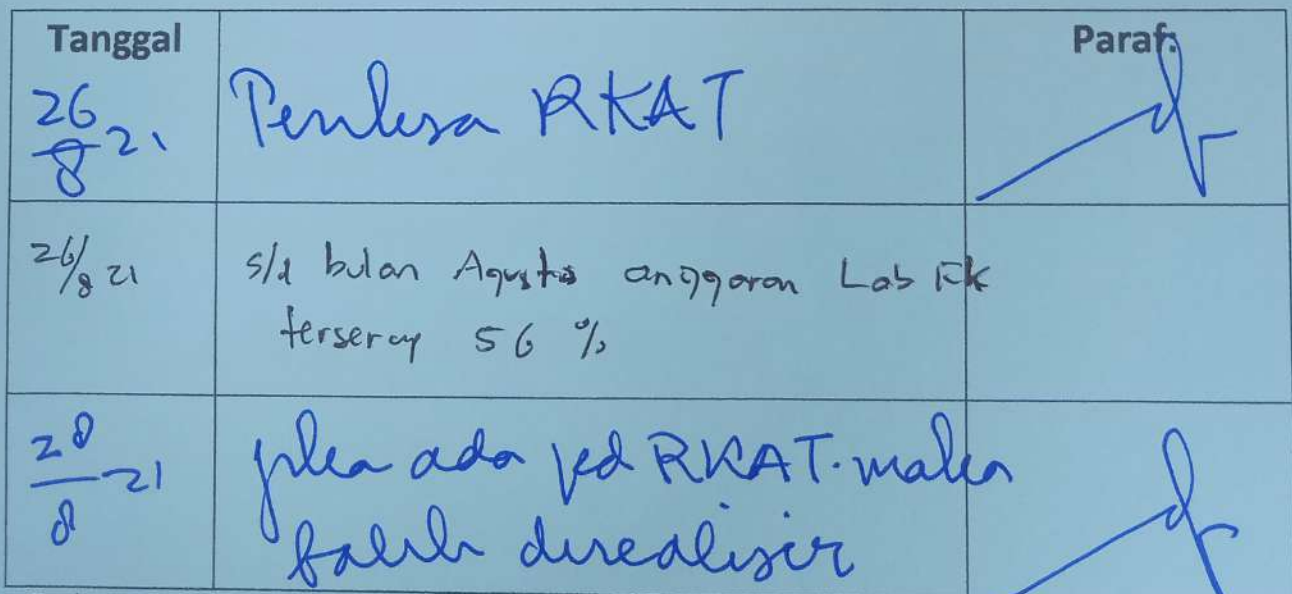 Tanggal Paraf:
26/8 21 Periksa RKAT
26/8 21 s/d bulan Agustus anggaran Lab FK
terserap 56 %
28/8 21 jika ada pd RKAT. maka
direalisir